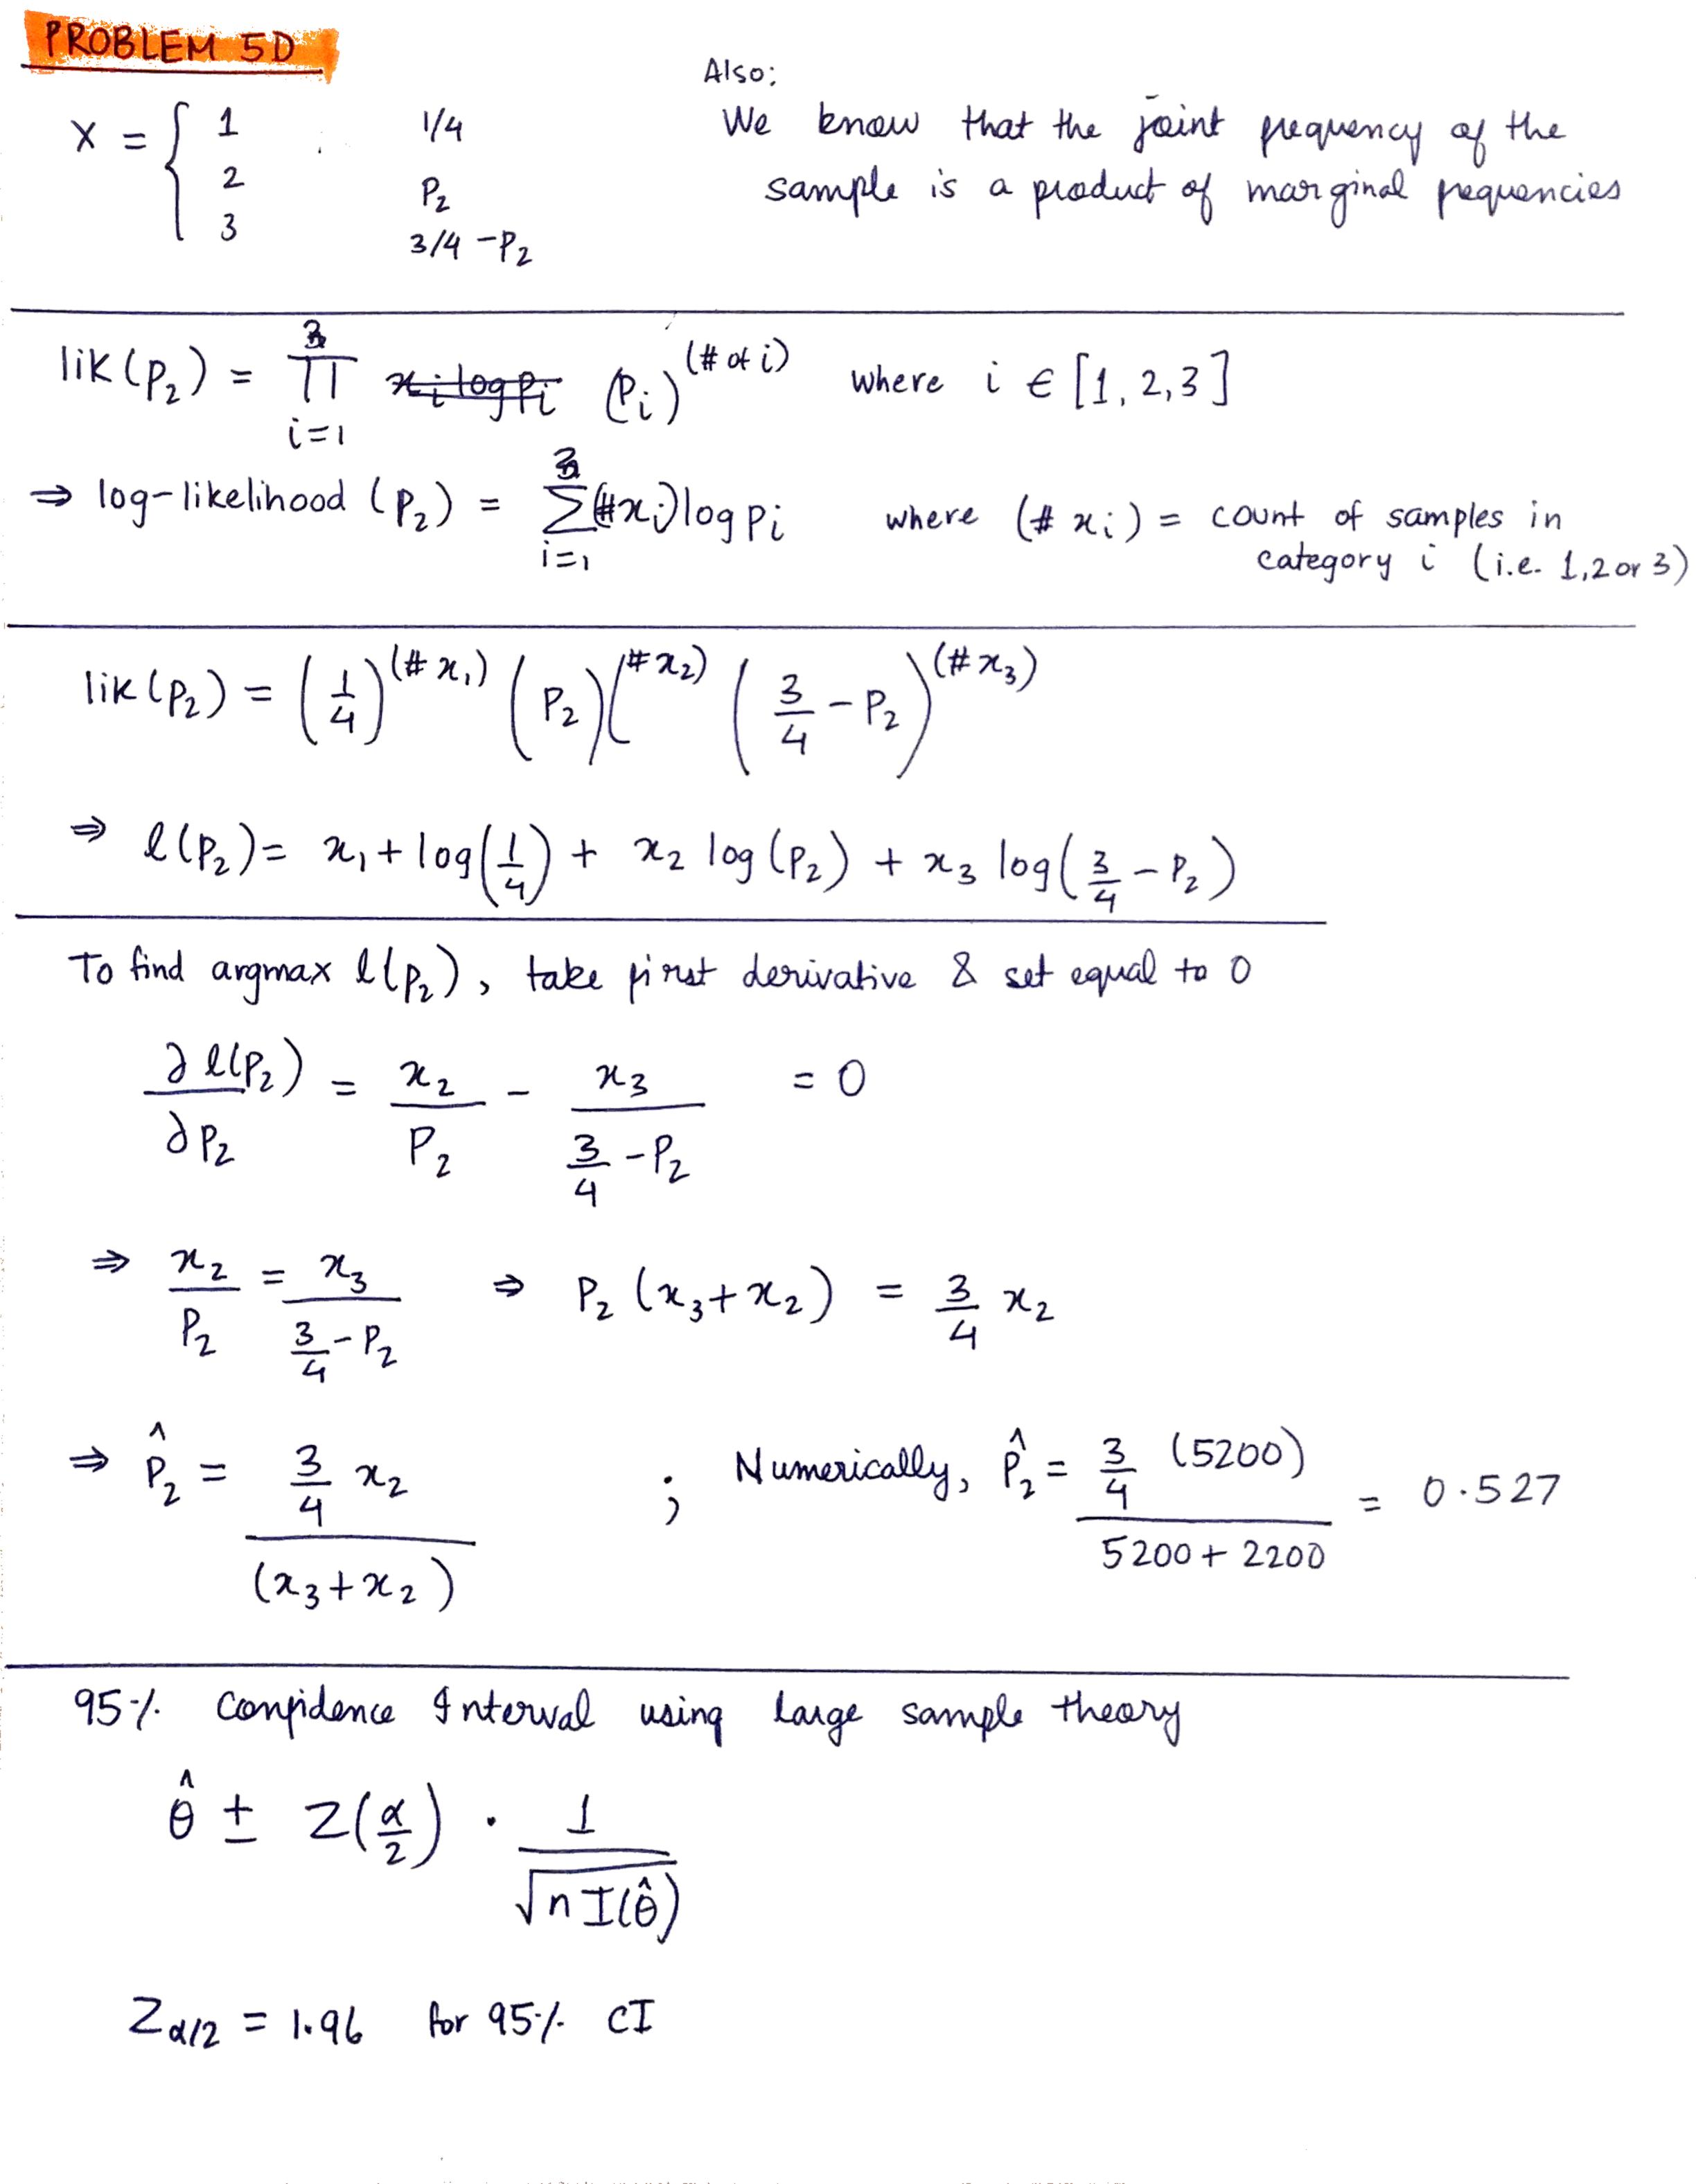 PROBLEM 5D
X = { 1 1/4
2 P₂
3 3/4 - P₂
Also:
We know that the joint frequency of the
sample is a product of marginal frequencies
lik(p₂) = ∏_{i=1}^{3} (Pᵢ)^(# of i) where i ∈ [1, 2, 3]
⇒ log-likelihood (p₂) = ∑_{i=1}^{3} (#xᵢ) log pᵢ where (# xᵢ) = count of samples in
category i (i.e. 1, 2 or 3)
lik(p₂) = (1/4)^(# x₁) (P₂)^(# x₂) (3/4 - P₂)^(# x₃)
⇒ l(P₂) = x₁ + log(1/4) + x₂ log(P₂) + x₃ log(3/4 - P₂)
To find argmax l(p₂), take first derivative & set equal to 0
∂ l(P₂) / ∂ P₂ = x₂ / P₂ - x₃ / (3/4 - P₂) = 0
⇒ x₂ / P₂ = x₃ / (3/4 - P₂) ⇒ P₂ (x₃ + x₂) = 3/4 x₂
⇒ P̂₂ = 3/4 x₂ / (x₃ + x₂) ; Numerically, P̂₂ = 3/4 (5200) / 5200 + 2200 = 0.527
95% Confidence Interval using large sample theory
θ̂ ± Z(α/2) · 1 / √n I(θ̂)
Z α/2 = 1.96 for 95% CI